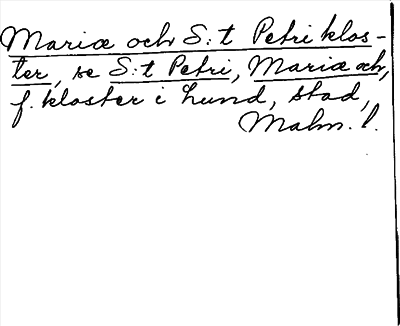 Mariæ och S:t Petri klos-
ter, se S:t Petri, Mariæ och,
f. kloster i Lund, stad,
Malm. l.